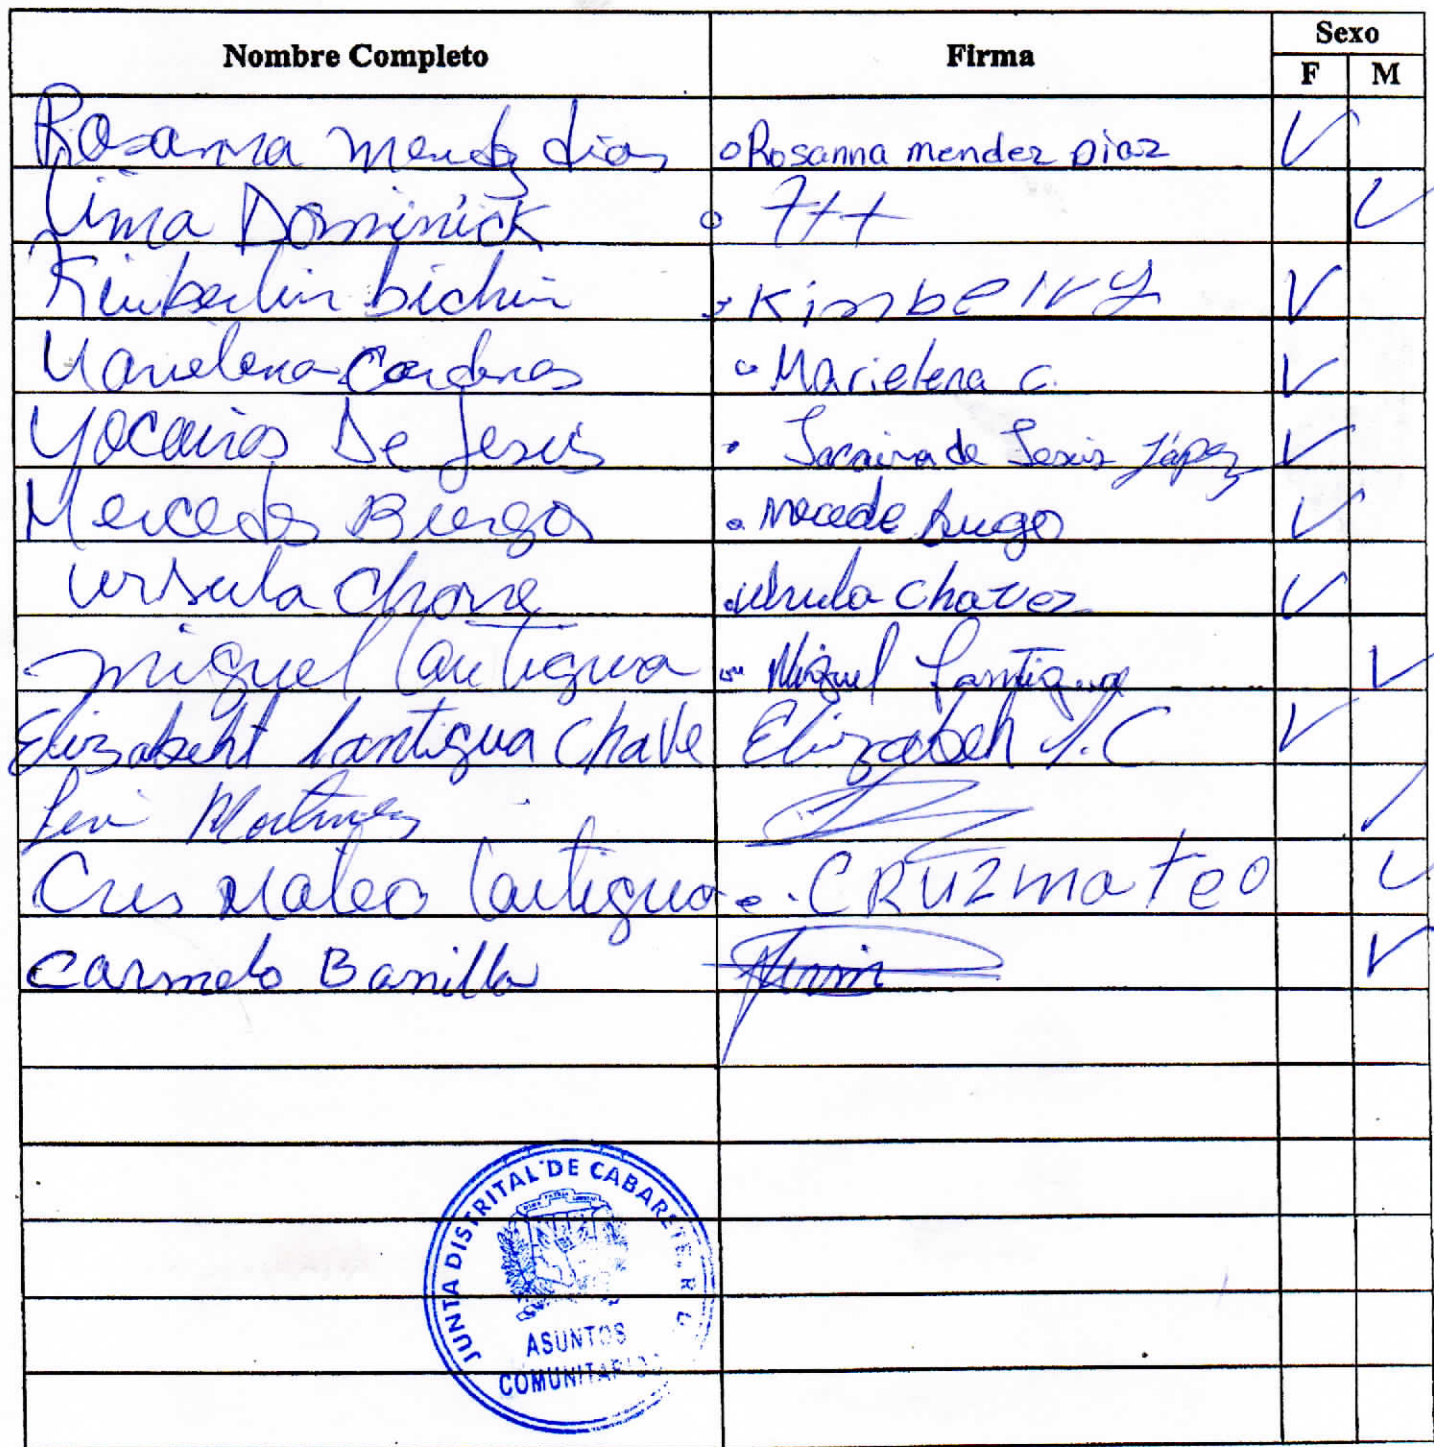 Nombre Completo Firma Sexo
F M
Rosanna Mendez dias Rosanna mendez Diaz
Dominick
Kimberlin bichin Kimbelvy
Marielena Cardenas Marielena C.
Yocairos De Jesús de Jesús López
Mercedes Burgos Mecede Bugo
Ursula Chave Ursula Chavez
Miguel Lantigua Miguel Lantigua
Elizabeht Lantigua Chave Elizabeh L.C
Martinez
Cris Mateo Lantigua CRUZ mateo
Carmelo Bonilla
JUNTA DISTRITAL DE CABARETE, R D
ASUNTOS
COMUNITARIOS